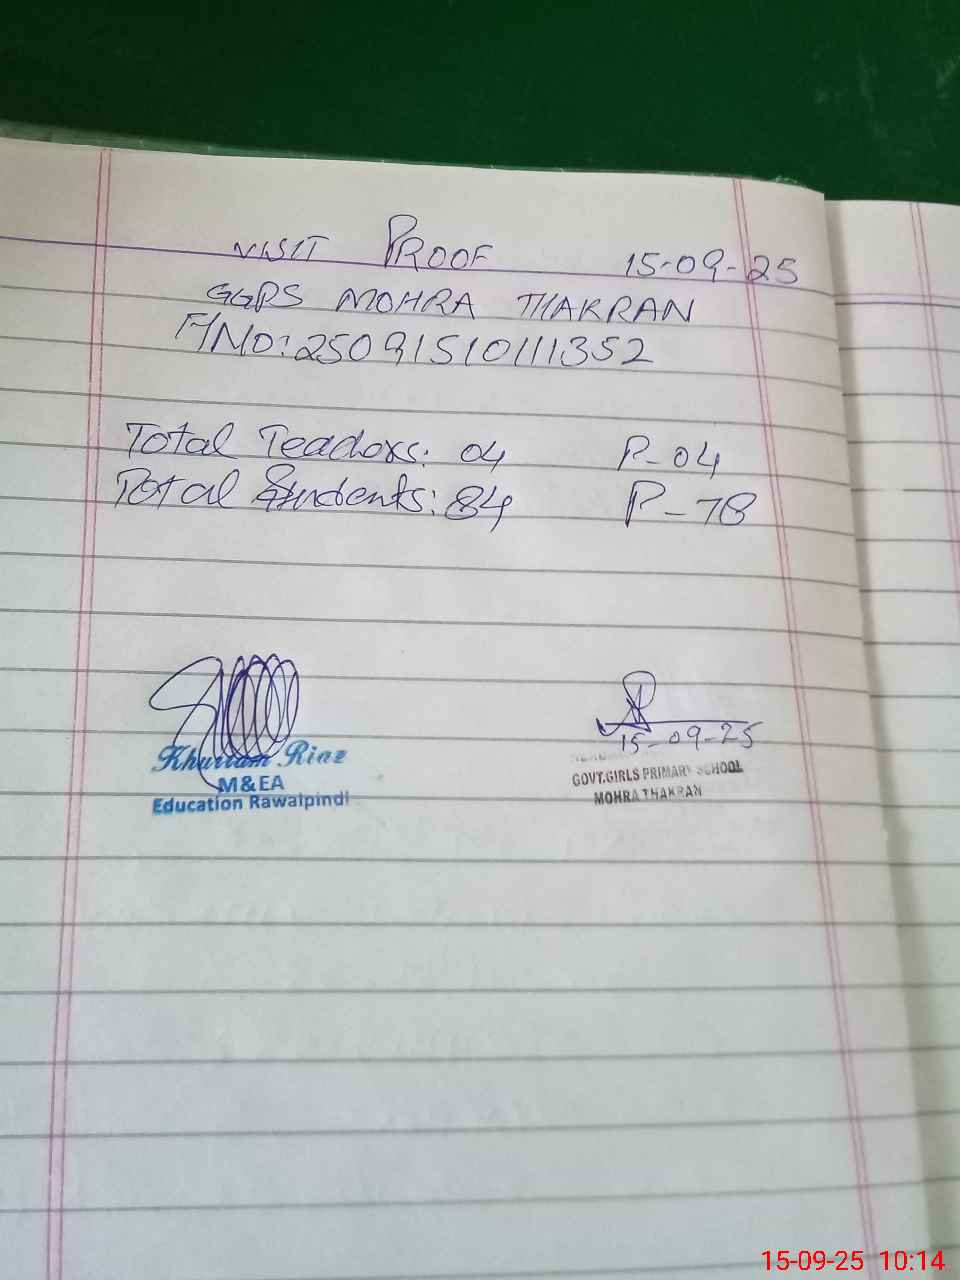 VISIT PROOF 15-09-25
GGPS MOHRA THAKRAN
F/NO: 25091510111352
Total Teachers: 04 P-04
Total Students: 84 P-78
Khurram Riaz
M&EA
Education Rawalpindi
15-09-25
GOVT.GIRLS PRIMARY SCHOOL
MOHRA THAKRAN
15-09-25 10:14